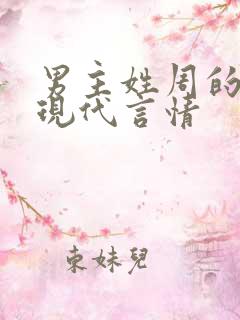 男主姓周的
現代言情
束妹兒